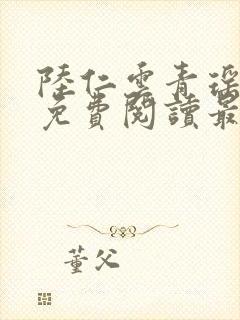 陸仁雲青瑤
免費閱讀最
董父